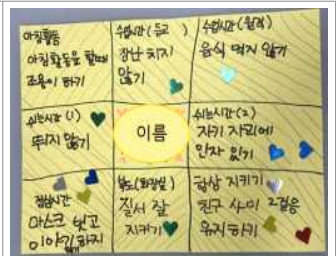 아침활동
아침활동을 할때
조용히 하기
수업시간(등교)
장난 치지
않기
수업시간(원격)
음식 먹지 않기
쉬는시간(1)
뛰지 않기
이름
쉬는시간(2)
자기 자리에
앉자 있기
점심시간
마스크 벗고
이야기하지
복도(화장실)
질서 잘
지키기
항상 지키기
친구 사이 2걸음
유지하기